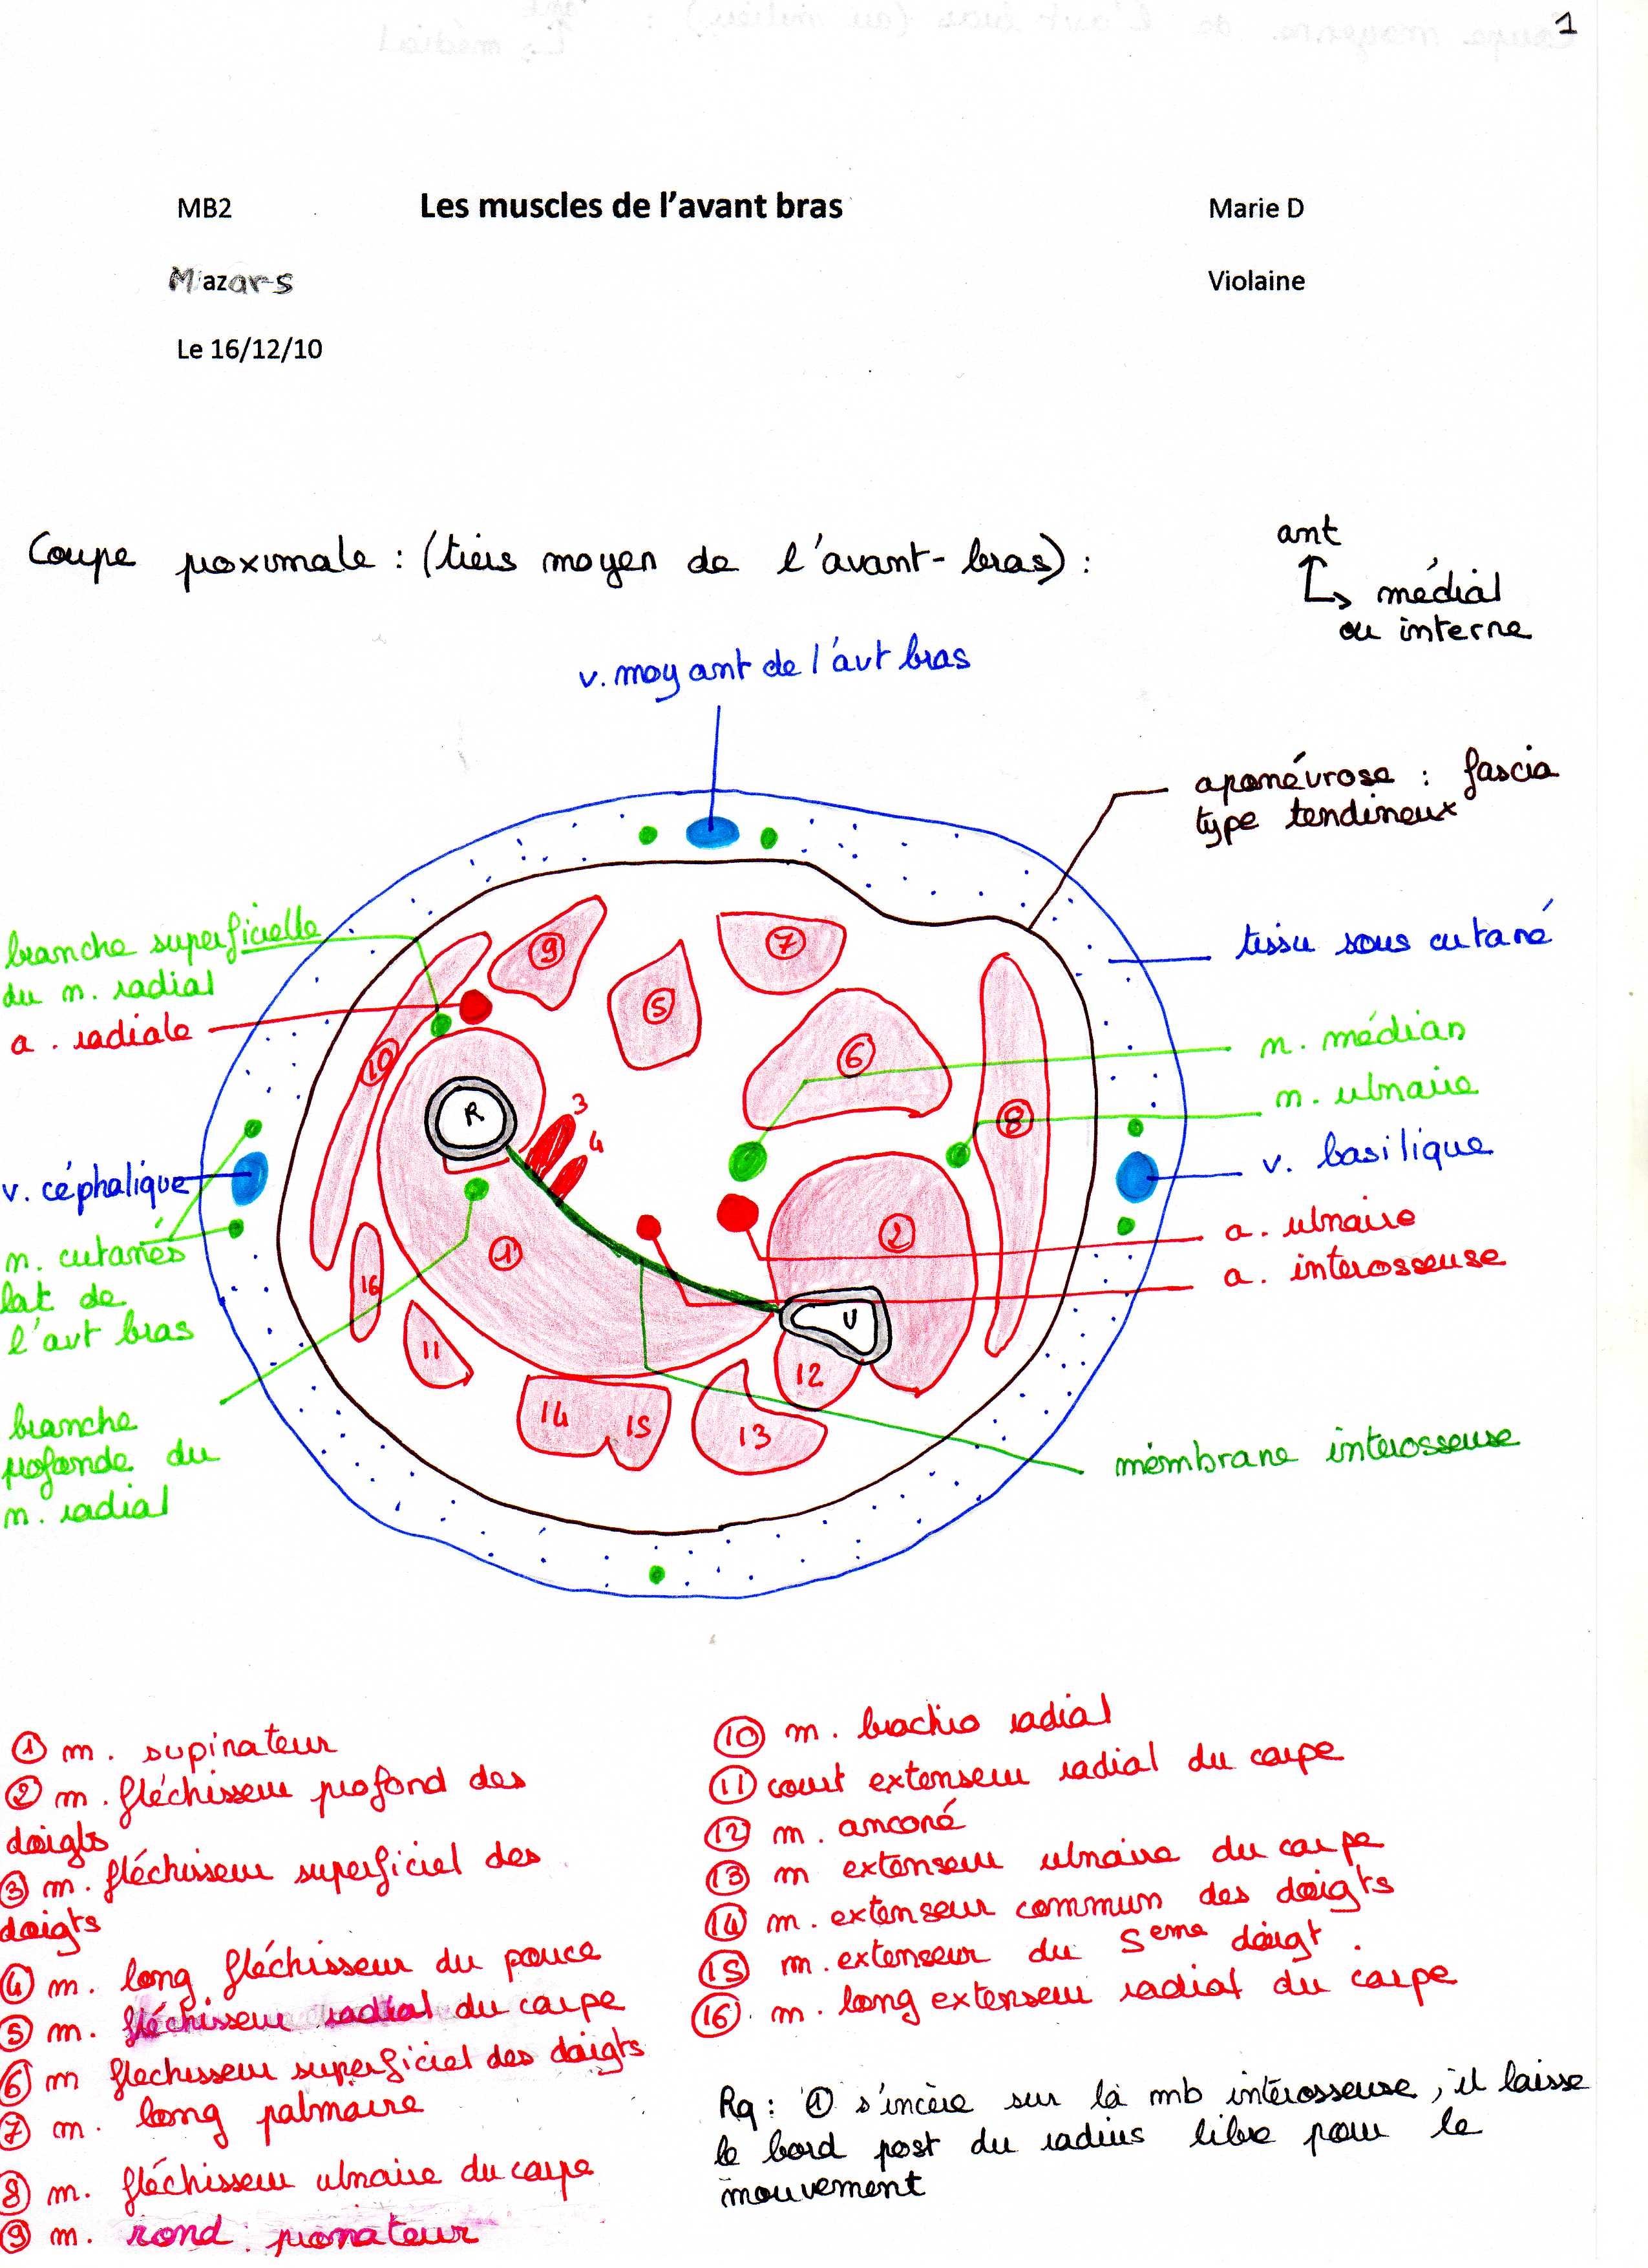 1
MB2
Les muscles de l'avant bras
Marie D
Mazars
Violaine
Le 16/12/10
Coupe proximale : (tiers moyen de l'avant-bras) :
ant
médial
ou interne
v. moy ant de l'avt bras
aponévrose : fascia
type tendineux
branche superficielle
du n. radial
a. radiale
tissu sous cutané
n. médian
n. ulnaire
v. basilique
v. céphalique
a. ulnaire
a. interosseuse
n. cutanés
lat de
l'avt bras
branche
profonde du
n. radial
mémbrane interosseuse
9
7
5
6
10
R
3
4
8
1
2
16
U
11
12
14
15
13
① m. supinateur
② m. fléchisseur profond des
doigts
③ m. fléchisseur superficiel des
doigts
④ m. long fléchisseur du pouce
⑤ m. fléchisseur radial du carpe
⑥ m fléchisseur superficiel des doigts
⑦ m. long palmaire
⑧ m. fléchisseur ulnaire du carpe
⑨ m. rond pronateur
⑩ m. brachio radial
⑪ court extenseur radial du carpe
⑫ m. anconé
⑬ m extenseur ulnaire du carpe
⑭ m. extenseur commun des doigts
⑮ m. extenseur du 5eme doigt.
⑯ m. long extenseur radial du carpe
Rq : ① s'incère sur la mb intérosseuse, il laisse
le bord post du radius libre pour le
mouvement